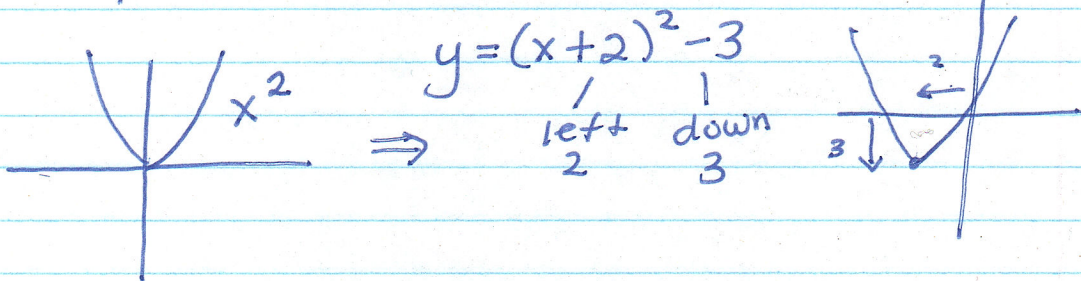 x²
y=(x+2)²-3
⇒
left down
2 3
2 ←
3 ↓